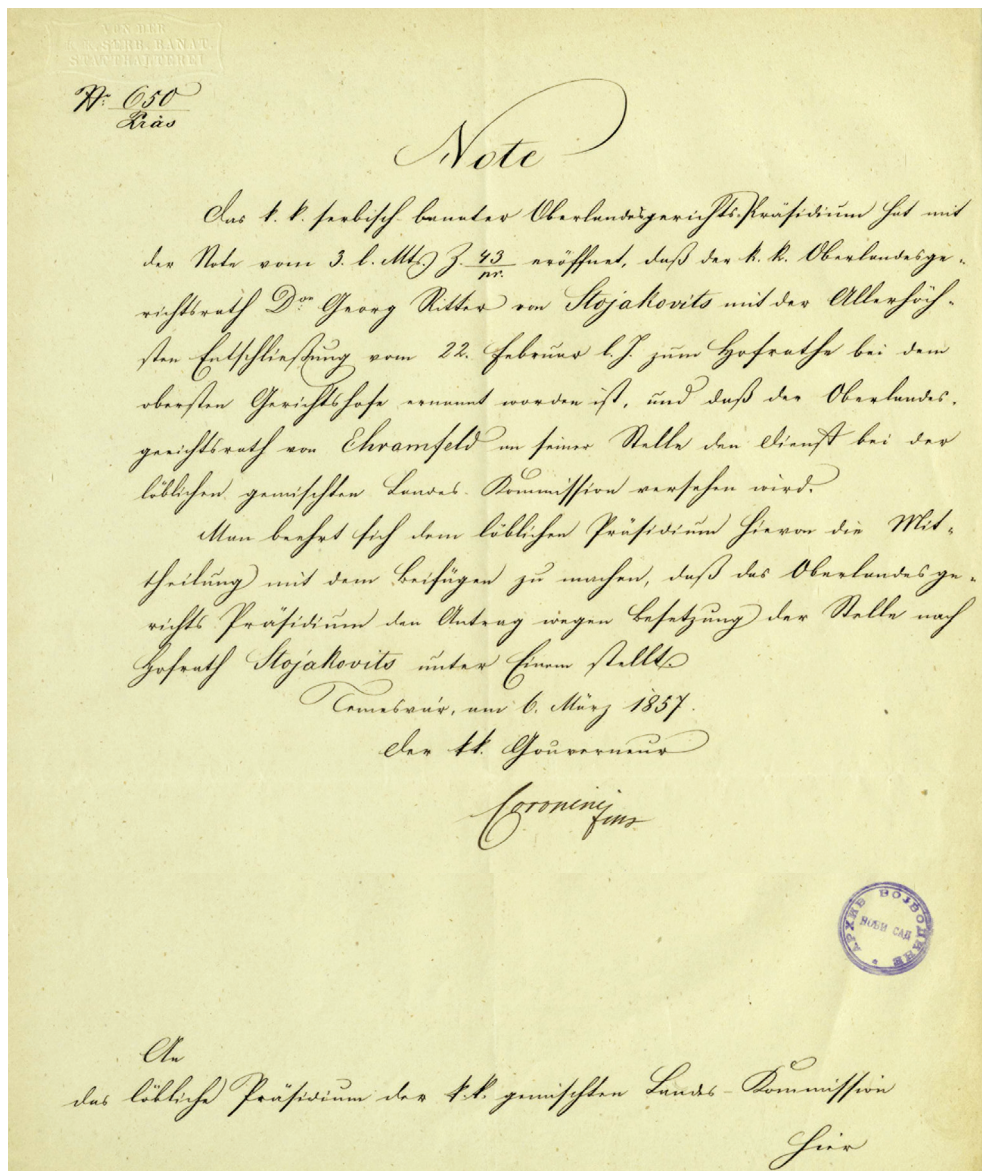 VON DER
K. K. SERB. BANAT.
STATTHALTEREI
Nr. 650
Präs
Note
Das k. k. serbisch banater Oberlandesgerichts-Präsidium hat mit
der Note vom 3. l. Mts. Z. 43/pr. eröffnet, daß der k. k. Oberlandesge-
richtsrath Dor Georg Ritter von Stojakovits mit der Allerhöch-
sten Entschließung vom 22. Februar l. J. zum Hofrathe bei dem
obersten Gerichtshofe ernannt worden ist, und daß der Oberlandes-
gerichtsrath von Ehramfeld an seiner Stelle den Dienst bei der
löblichen gemischten Landes-Kommission versehen wird.
Man beehrt sich dem löblichen Präsidium hievon die Mit-
theilung mit dem Beifügen zu machen, daß das Oberlandesge-
richts Präsidium den Antrag wegen Besetzung der Stelle nach
Hofrath Stojakovits unter Einem stellt.
Temesvár, am 6. März 1857.
Der kk. Gouverneur
Coronini
АРХИВ ВОЈВОДИНЕ
НОВИ САД
An
das löbliche Präsidium der k.k. gemischten Landes-Kommission
Hier